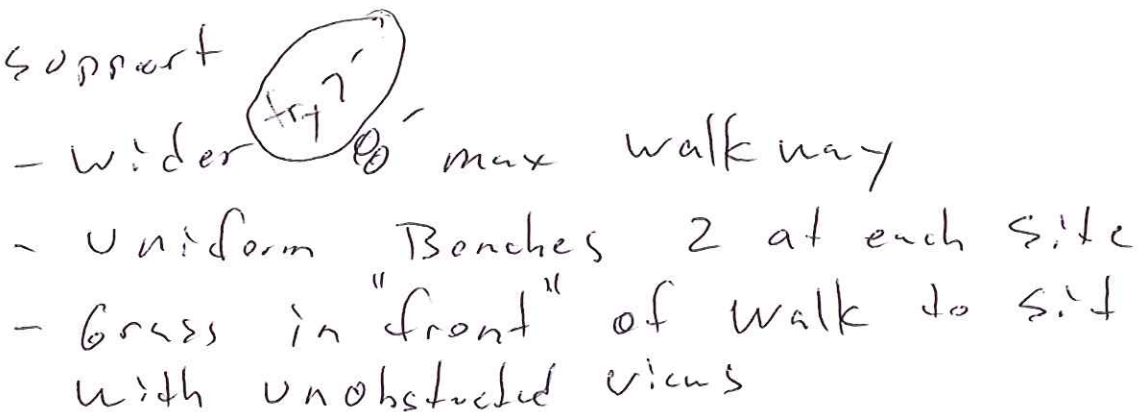 support
try 7'
- wider 8' max walkway
- Uniform Benches 2 at each site
- Grass in "front" of walk to sit
with unobstructed views